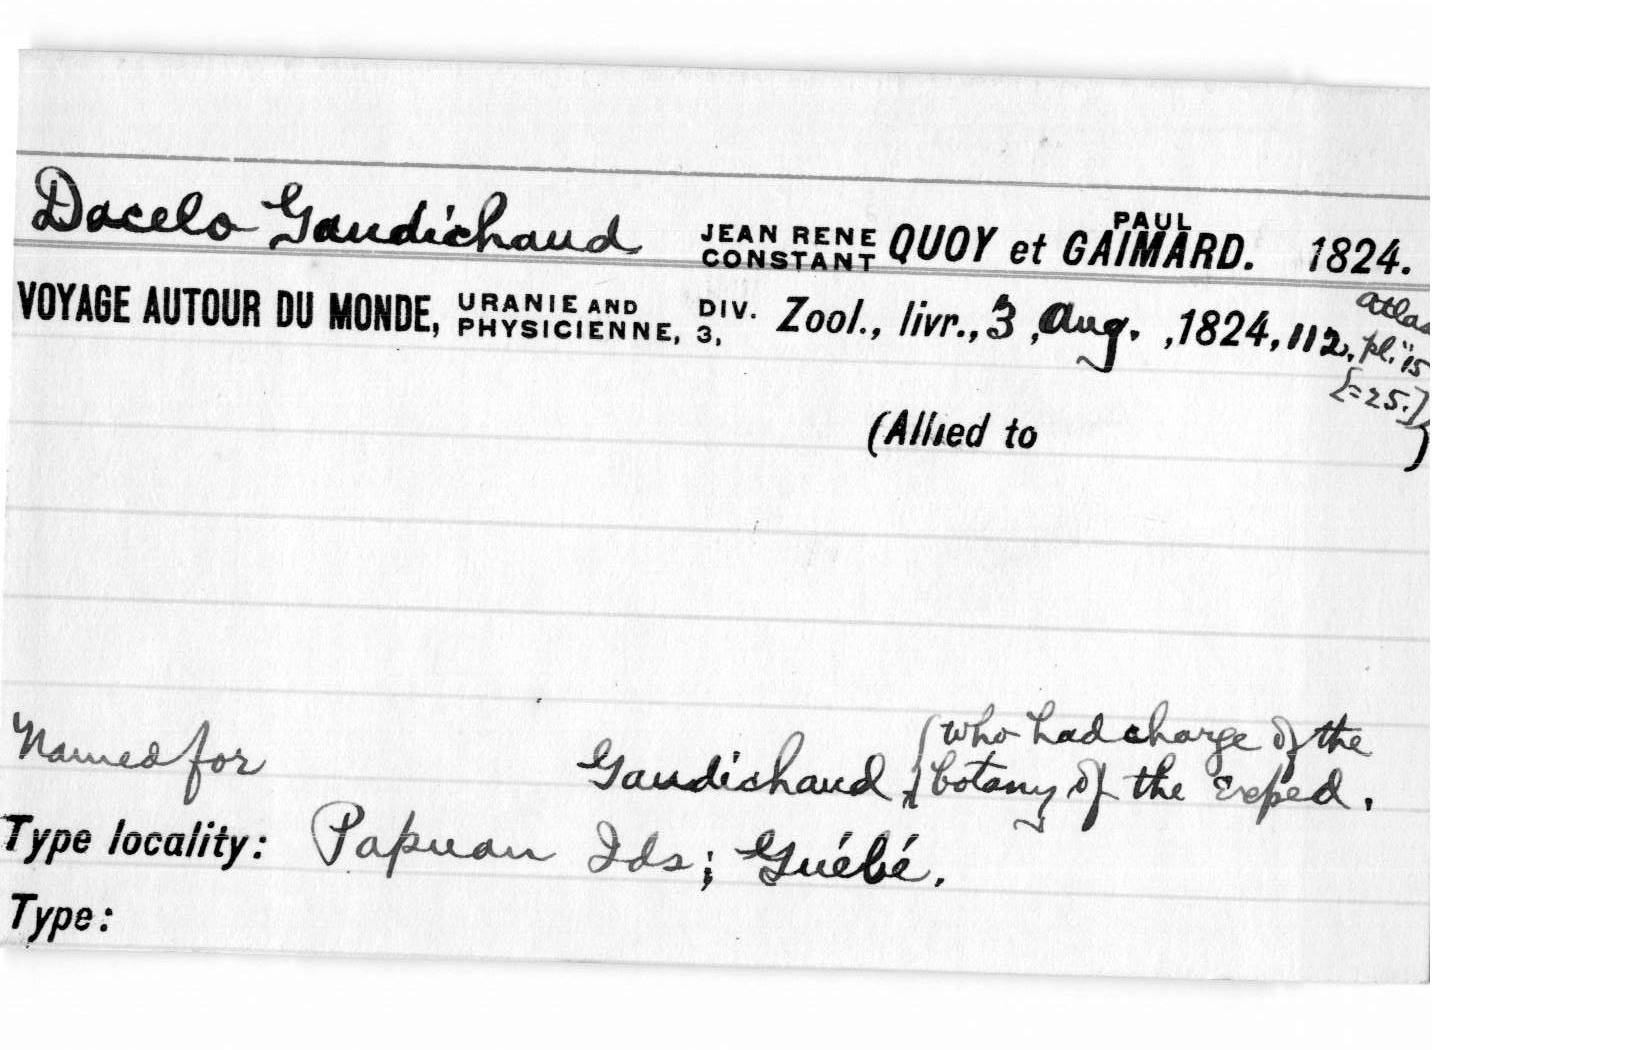 Dacelo Gaudichaud JEAN RENE CONSTANT QUOY et PAUL GAIMARD. 1824.
VOYAGE AUTOUR DU MONDE, URANIE AND PHYSICIENNE, DIV. 3, Zool., livr., 3, Aug. ,1824, 112, atlas pl. "15
[=25.]
(Allied to )
Named for Gaudichaud, {who had charge of the
botany of the Exped.
Type locality: Papuan Ids; Guébé.
Type: